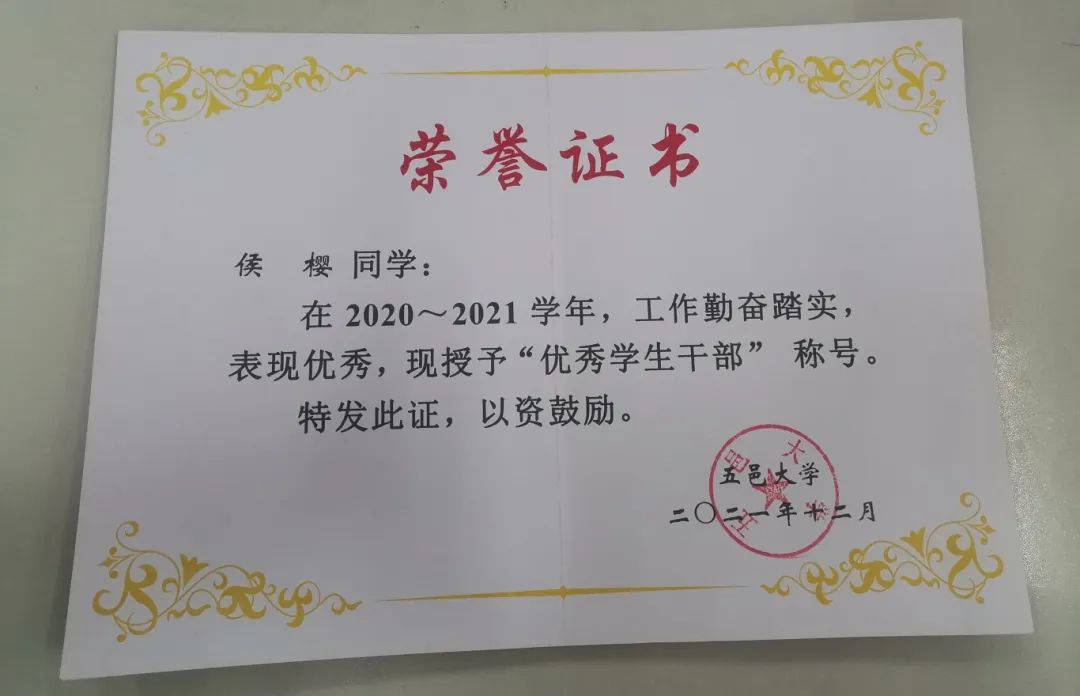 荣誉证书
侯 樱 同学：
在 2020～2021 学年，工作勤奋踏实，
表现优秀，现授予“优秀学生干部” 称号。
特发此证，以资鼓励。
五邑大学
五邑大学
二〇二一年十二月